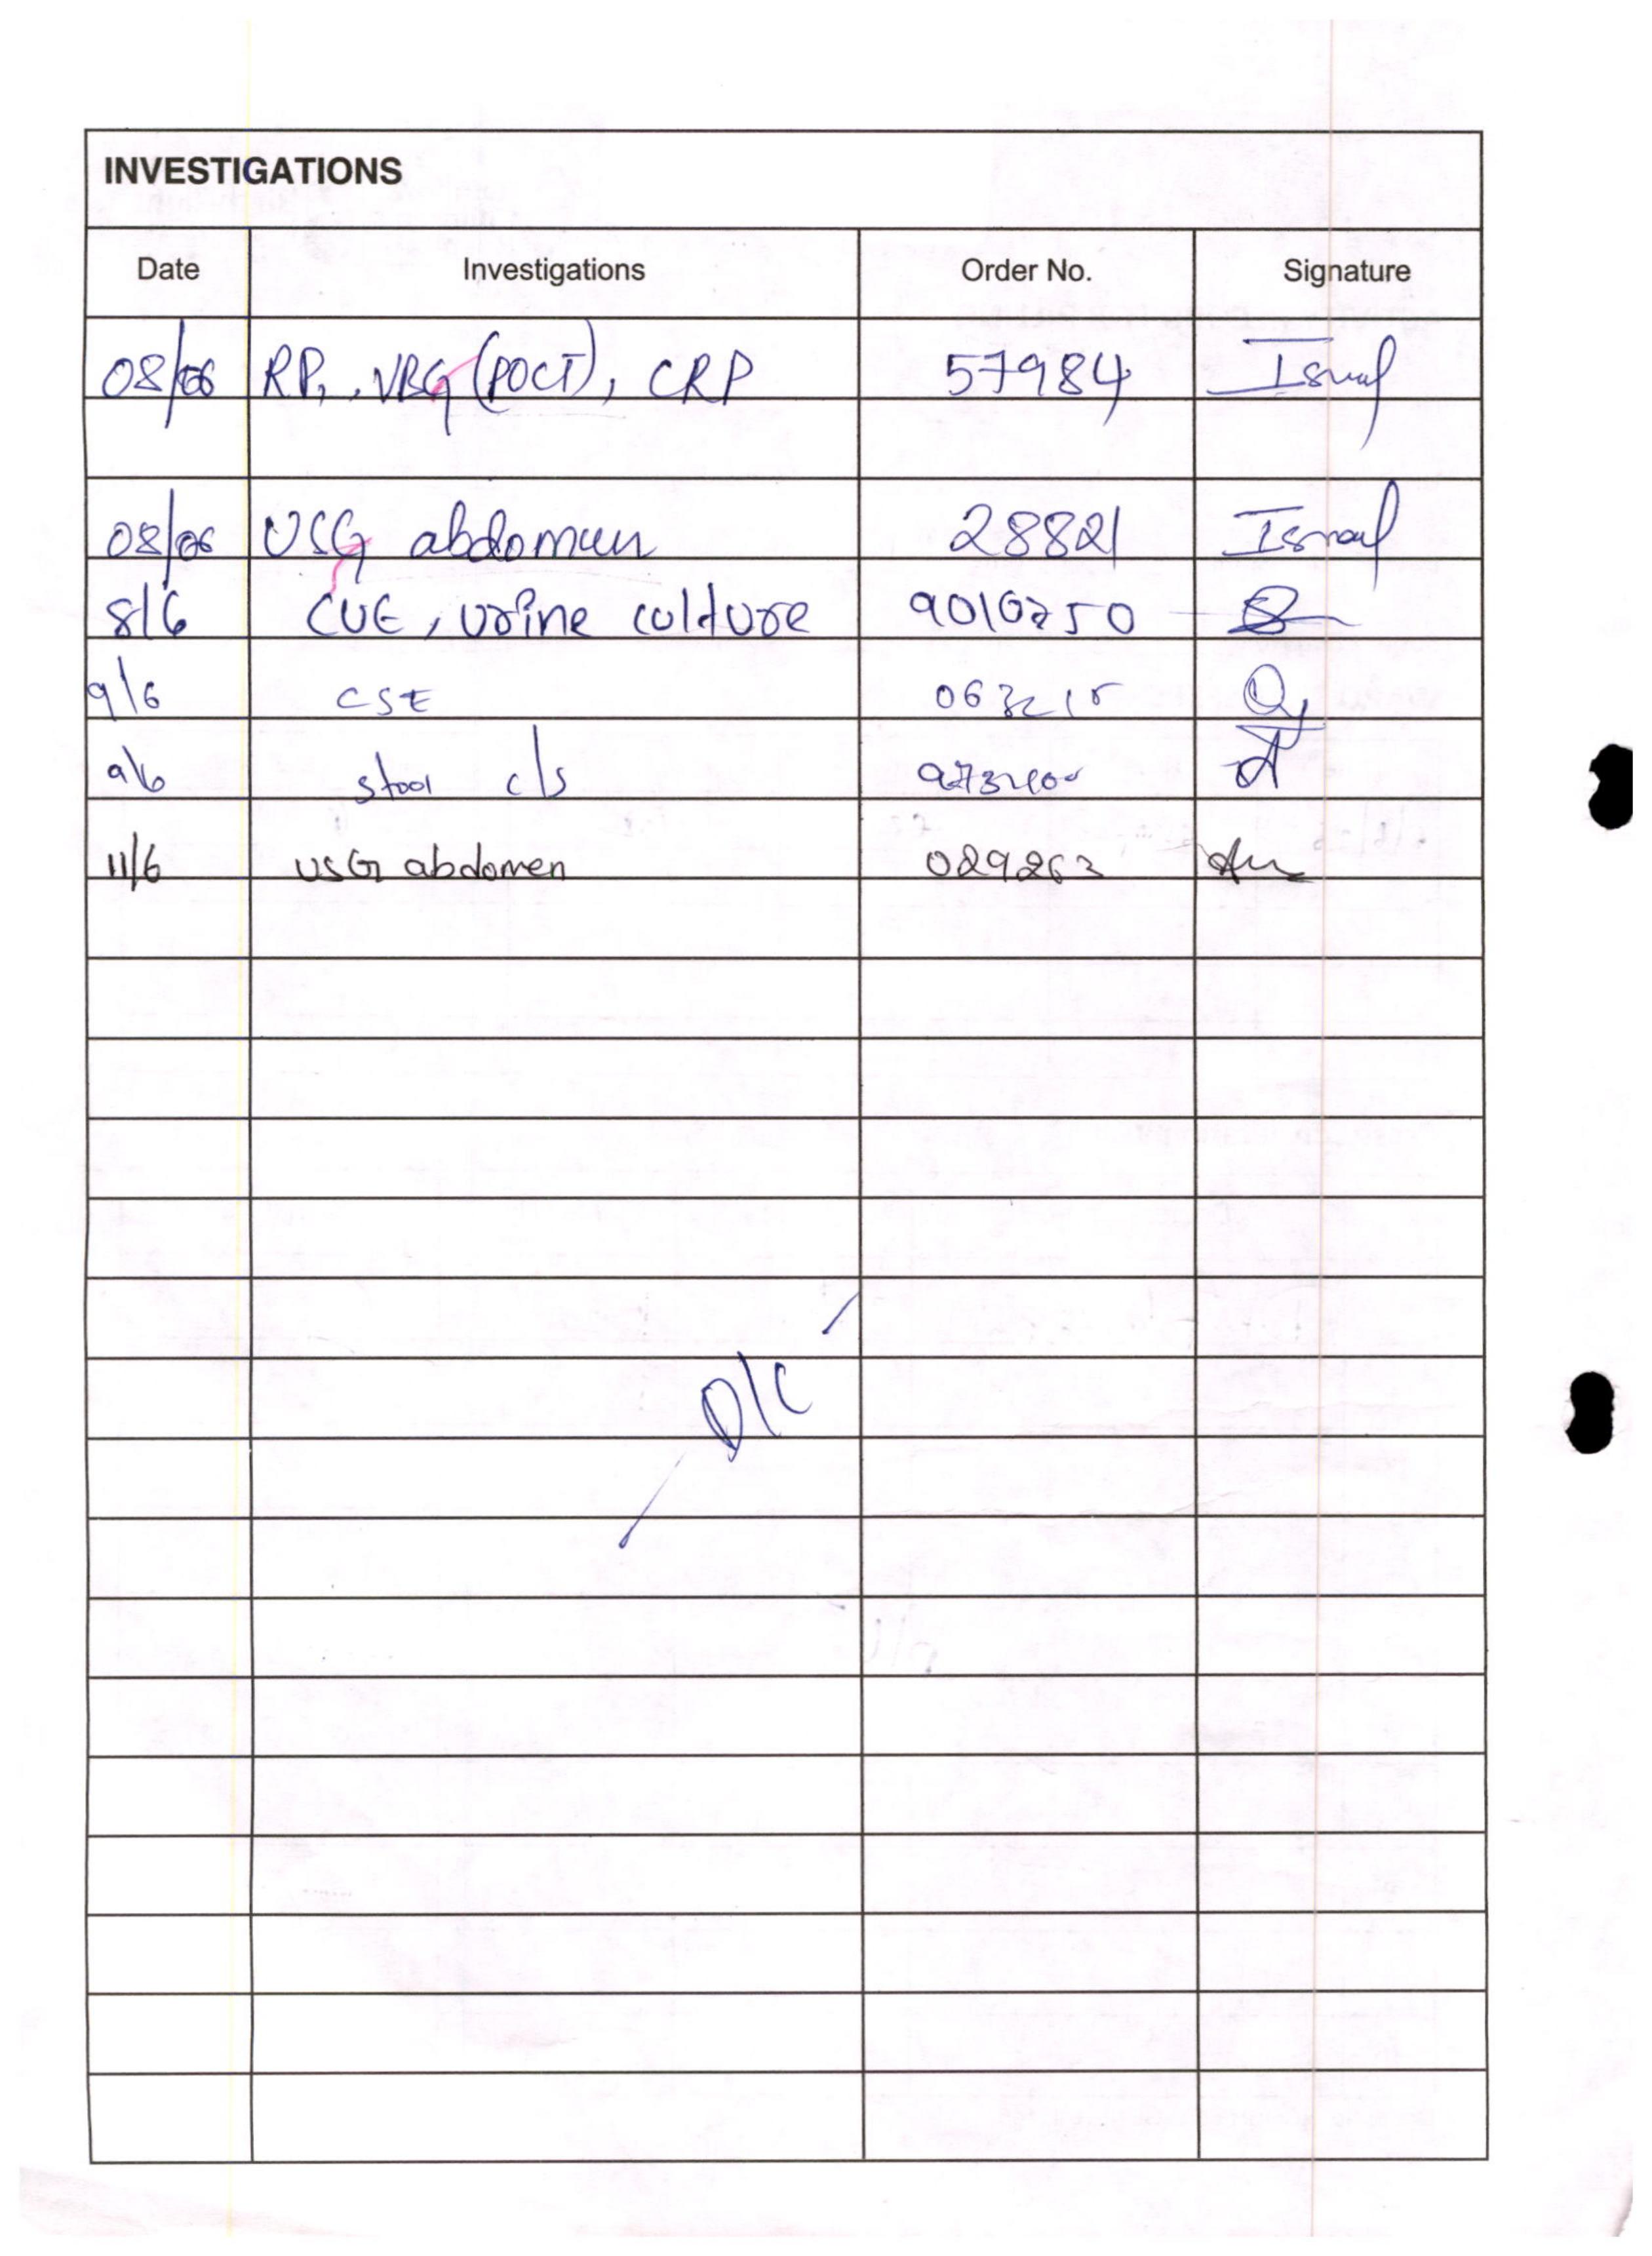 INVESTIGATIONS
Date Investigations Order No. Signature
08/06 RP, VBG (POCT), CRP 57984 Ismail
08/06 USG abdomen 28821 Ismail
8/6 CUE, urine culture 9010250
9/6 CSE
9/6 stool c/s
11/6 USG abdomen 029263
D/C